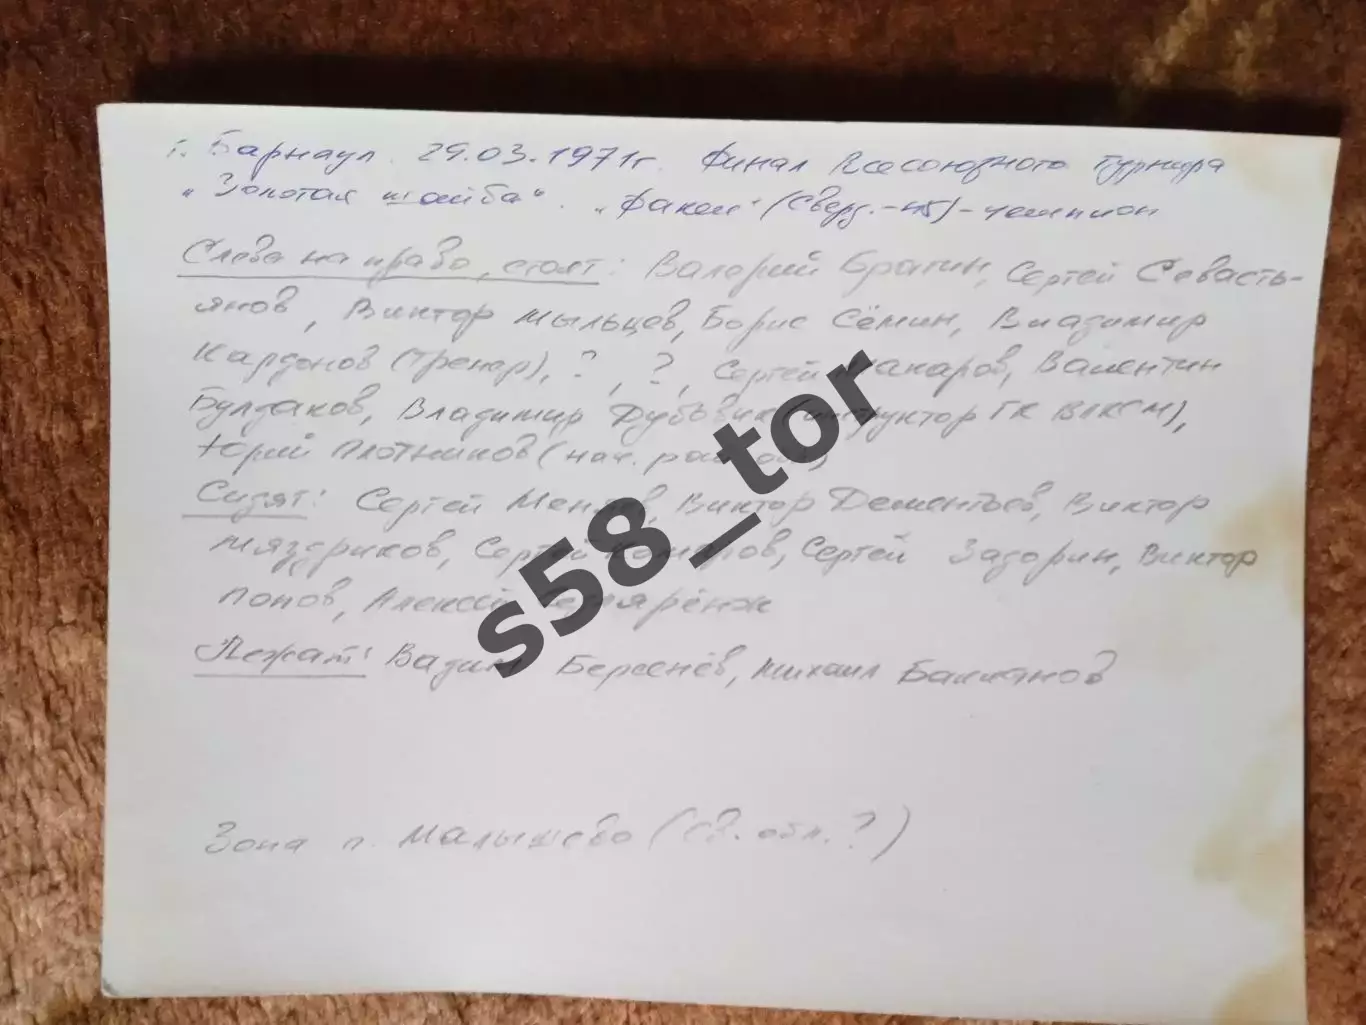 г. Барнаул. 29.03.1971г. Финал Всесоюзного турнира
"Золотая шайба". "Факел" (Сверд.-45) - чемпион
Слева на право, стоят: Валерий Брагин, Сергей Севасть-
янов, Виктор Мыльцев, Борис Сёмин, Владимир
Кардонов (тренер), ?, ?, Сергей Макаров, Валентин
Булдаков, Владимир Дубовик (инструктор ГК ВЛКСМ),
Юрий Плотников (нач.
Сидят: Сергей Виктор Дементьев, Виктор
Мяздриков, Сергей Комаров, Сергей Задорин, Виктор
Попов, Алексей
Лежат: Вадим Береснёв, Михаил
Зона п. Малышево (Св. обл. ?)
s58_tor